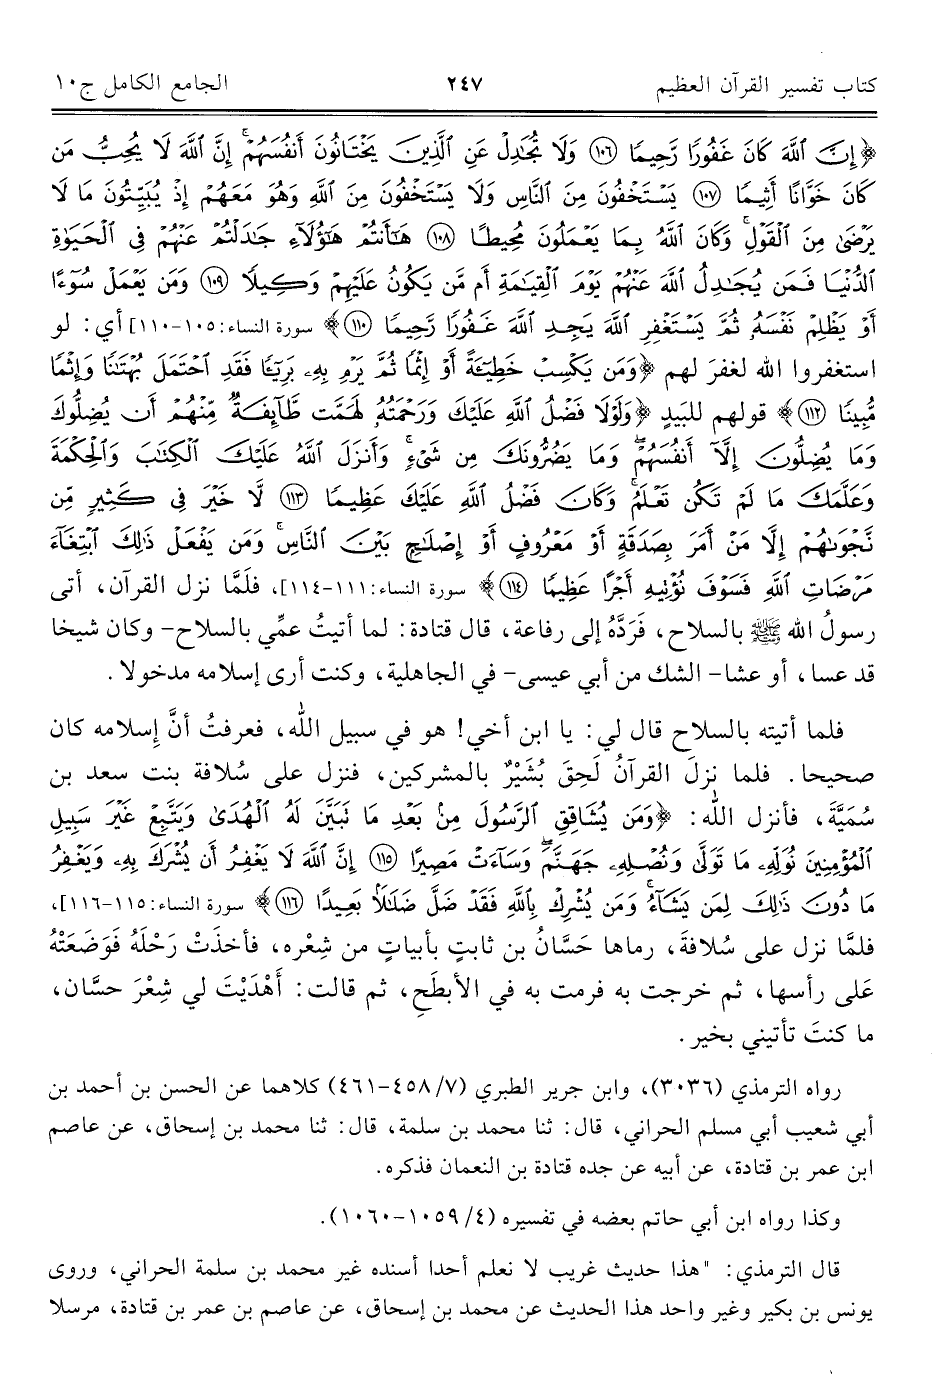 كتاب تفسير القرآن العظيم ٢٤٧ الجامع الكامل ج١٠
﴿إِنَّ ٱللَّهَ كَانَ غَفُورًا رَّحِيمًا ١٠٦ وَلَا تُجَٰدِلْ عَنِ ٱلَّذِينَ يَخْتَانُونَ أَنفُسَهُمْ ۚ إِنَّ ٱللَّهَ لَا يُحِبُّ مَن
كَانَ خَوَّانًا أَثِيمًا ١٠٧ يَسْتَخْفُونَ مِنَ ٱلنَّاسِ وَلَا يَسْتَخْفُونَ مِنَ ٱللَّهِ وَهُوَ مَعَهُمْ إِذْ يُبَيِّتُونَ مَا لَا
يَرْضَىٰ مِنَ ٱلْقَوْلِ ۚ وَكَانَ ٱللَّهُ بِمَا يَعْمَلُونَ مُحِيطًا ١٠٨ هَٰٓأَنتُمْ هَٰٓؤُلَآءِ جَٰدَلْتُمْ عَنْهُمْ فِى ٱلْحَيَوٰةِ
ٱلدُّنْيَا فَمَن يُجَٰدِلُ ٱللَّهَ عَنْهُمْ يَوْمَ ٱلْقِيَٰمَةِ أَم مَّن يَكُونُ عَلَيْهِمْ وَكِيلًا ١٠٩ وَمَن يَعْمَلْ سُوٓءًا
أَوْ يَظْلِمْ نَفْسَهُۥ ثُمَّ يَسْتَغْفِرِ ٱللَّهَ يَجِدِ ٱللَّهَ غَفُورًا رَّحِيمًا ١١٠﴾ سورة النساء: ١٠٥-١١٠] أي: لو
استغفروا الله لغفرَ لهم ﴿وَمَن يَكْسِبْ خَطِيٓـَٔةً أَوْ إِثْمًا ثُمَّ يَرْمِ بِهِۦ بَرِيٓـًٔا فَقَدِ ٱحْتَمَلَ بُهْتَٰنًا وَإِثْمًا
مُّبِينًا ١١٢﴾ قولهم للبَيدٍ ﴿وَلَوْلَا فَضْلُ ٱللَّهِ عَلَيْكَ وَرَحْمَتُهُۥ لَهَمَّت طَّآئِفَةٌ مِّنْهُمْ أَن يُضِلُّوكَ
وَمَا يُضِلُّونَ إِلَّآ أَنفُسَهُمْ ۖ وَمَا يَضُرُّونَكَ مِن شَىْءٍ ۚ وَأَنزَلَ ٱللَّهُ عَلَيْكَ ٱلْكِتَٰبَ وَٱلْحِكْمَةَ
وَعَلَّمَكَ مَا لَمْ تَكُن تَعْلَمُ ۚ وَكَانَ فَضْلُ ٱللَّهِ عَلَيْكَ عَظِيمًا ١١٣ لَّا خَيْرَ فِى كَثِيرٍ مِّن
نَّجْوَىٰهُمْ إِلَّا مَنْ أَمَرَ بِصَدَقَةٍ أَوْ مَعْرُوفٍ أَوْ إِصْلَٰحٍ بَيْنَ ٱلنَّاسِ ۚ وَمَن يَفْعَلْ ذَٰلِكَ ٱبْتِغَآءَ
مَرْضَاتِ ٱللَّهِ فَسَوْفَ نُؤْتِيهِ أَجْرًا عَظِيمًا ١١٤﴾ سورة النساء: ١١١-١١٤]، فلَمَّا نزل القرآن، أتى
رسولُ الله ﷺ بالسلاح، فَرَدَّهُ إلى رفاعة، قال قتادة: لما أتيتُ عمِّي بالسلاح- وكان شيخا
قد عسا، أو عشا- الشك من أبي عيسى- في الجاهلية، وكنت أرى إسلامه مدخولا.
فلما أتيته بالسلاح قال لي: يا ابن أخي! هو في سبيل الله، فعرفتُ أنَّ إِسلامه كان
صحيحا. فلما نزلَ القرآنُ لَحِقَ بُشَيْرٌ بالمشركين، فنزل على سُلافة بنت سعد بن
سُمَيَّةَ، فأنزل الله: ﴿وَمَن يُشَاقِقِ ٱلرَّسُولَ مِنۢ بَعْدِ مَا تَبَيَّنَ لَهُ ٱلْهُدَىٰ وَيَتَّبِعْ غَيْرَ سَبِيلِ
ٱلْمُؤْمِنِينَ نُوَلِّهِۦ مَا تَوَلَّىٰ وَنُصْلِهِۦ جَهَنَّمَ ۖ وَسَآءَتْ مَصِيرًا ١١٥ إِنَّ ٱللَّهَ لَا يَغْفِرُ أَن يُشْرَكَ بِهِۦ وَيَغْفِرُ
مَا دُونَ ذَٰلِكَ لِمَن يَشَآءُ ۚ وَمَن يُشْرِكْ بِٱللَّهِ فَقَدْ ضَلَّ ضَلَٰلًۢا بَعِيدًا ١١٦﴾ سورة النساء: ١١٥-١١٦]،
فلمَّا نزل على سُلافةَ، رماها حَسَّانُ بن ثابتٍ بأبياتٍ من شِعْره، فأخذَتْ رَحْلَهُ فَوَضَعَتْهُ
عَلى رأسها، ثم خرجت به فرمت به في الأبطَحِ، ثم قالت: أَهْدَيْتَ لي شِعْرَ حسَّان،
ما كنتَ تأتيني بخير.
رواه الترمذي (٣٠٣٦)، وابن جرير الطبري (٧/ ٤٥٨-٤٦١) كلاهما عن الحسن بن أحمد بن
أبي شعيب أبي مسلم الحراني، قال: ثنا محمد بن سلمة، قال: ثنا محمد بن إسحاق، عن عاصم
ابن عمر بن قتادة، عن أبيه عن جده قتادة بن النعمان فذكره.
وكذا رواه ابن أبي حاتم بعضه في تفسيره (٤/ ١٠٥٩-١٠٦٠).
قال الترمذي: "هذا حديث غريب لا نعلم أحدا أسنده غير محمد بن سلمة الحراني، وروى
يونس بن بكير وغير واحد هذا الحديث عن محمد بن إسحاق، عن عاصم بن عمر بن قتادة، مرسلا